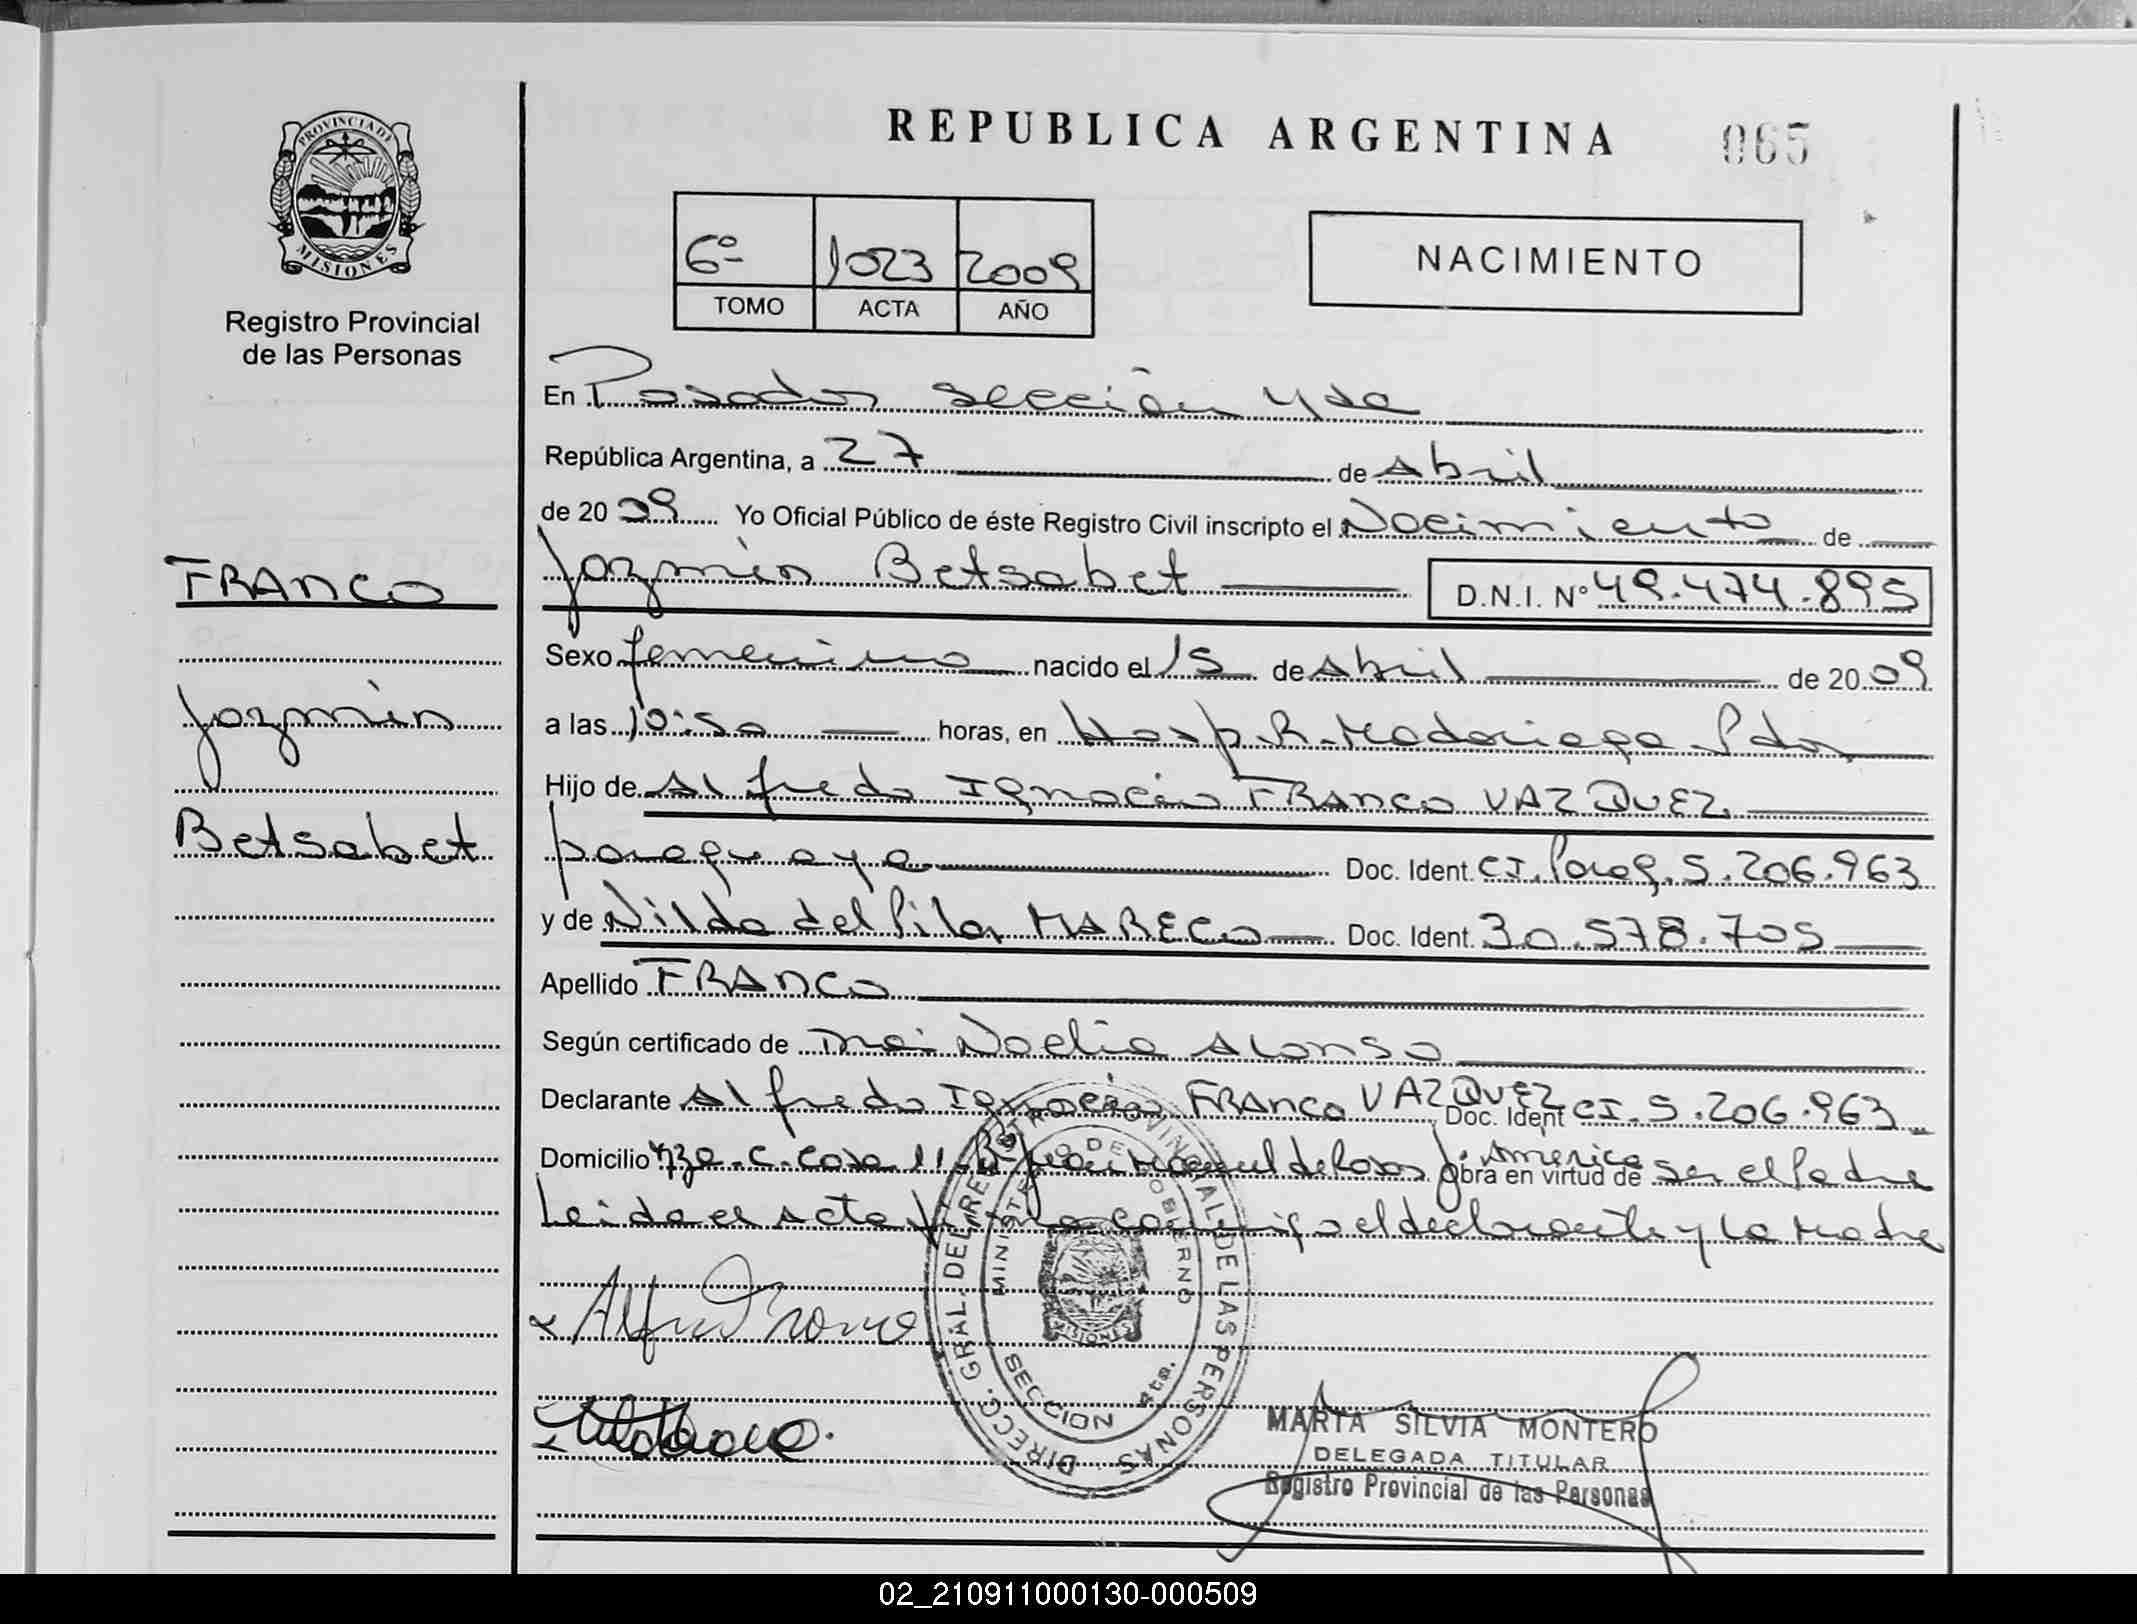 PROVINCIA DE
MISIONES
Registro Provincial
de las Personas
FRANCO
Jazmín
Betsabet
REPUBLICA ARGENTINA
065
6º 1023 2009
TOMO ACTA AÑO
NACIMIENTO
En Posadas sección 4ta
República Argentina, a 27 de Abril
de 2009 Yo Oficial Público de éste Registro Civil inscripto el Nacimiento de
Jazmín Betsabet D.N.I. Nº 49.474.895
Sexo femenino nacido el 15 de Abril de 2009
a las 10:50 horas, en Hosp. R. Madariaga Pdas
Hijo de Alfredo Ignacio FRANCO VAZQUEZ
paraguaya Doc. Ident. CI. Parag. 5.206.963
y de Nilda del Pilar MARECO Doc. Ident. 30.578.705
Apellido FRANCO
Según certificado de Noelia Alonso
Declarante Alfredo Ignacio FRANCO VAZQUEZ Doc. Ident CI. 5.206.963
Domicilio C. Casa 11 Bº Juan Manuel de Rosas J. America Obra en virtud de ser el Padre
Leida el Acta firma conmigo el declarante y la Madre
DIRECC. GRAL. DEL REGISTRO PROVINCIAL DE LAS PERSONAS
MINISTERIO DE GOBIERNO
MISIONES
SECCION 4ta.
MARTA SILVIA MONTERO
DELEGADA TITULAR
Registro Provincial de las Personas
02_210911000130-000509